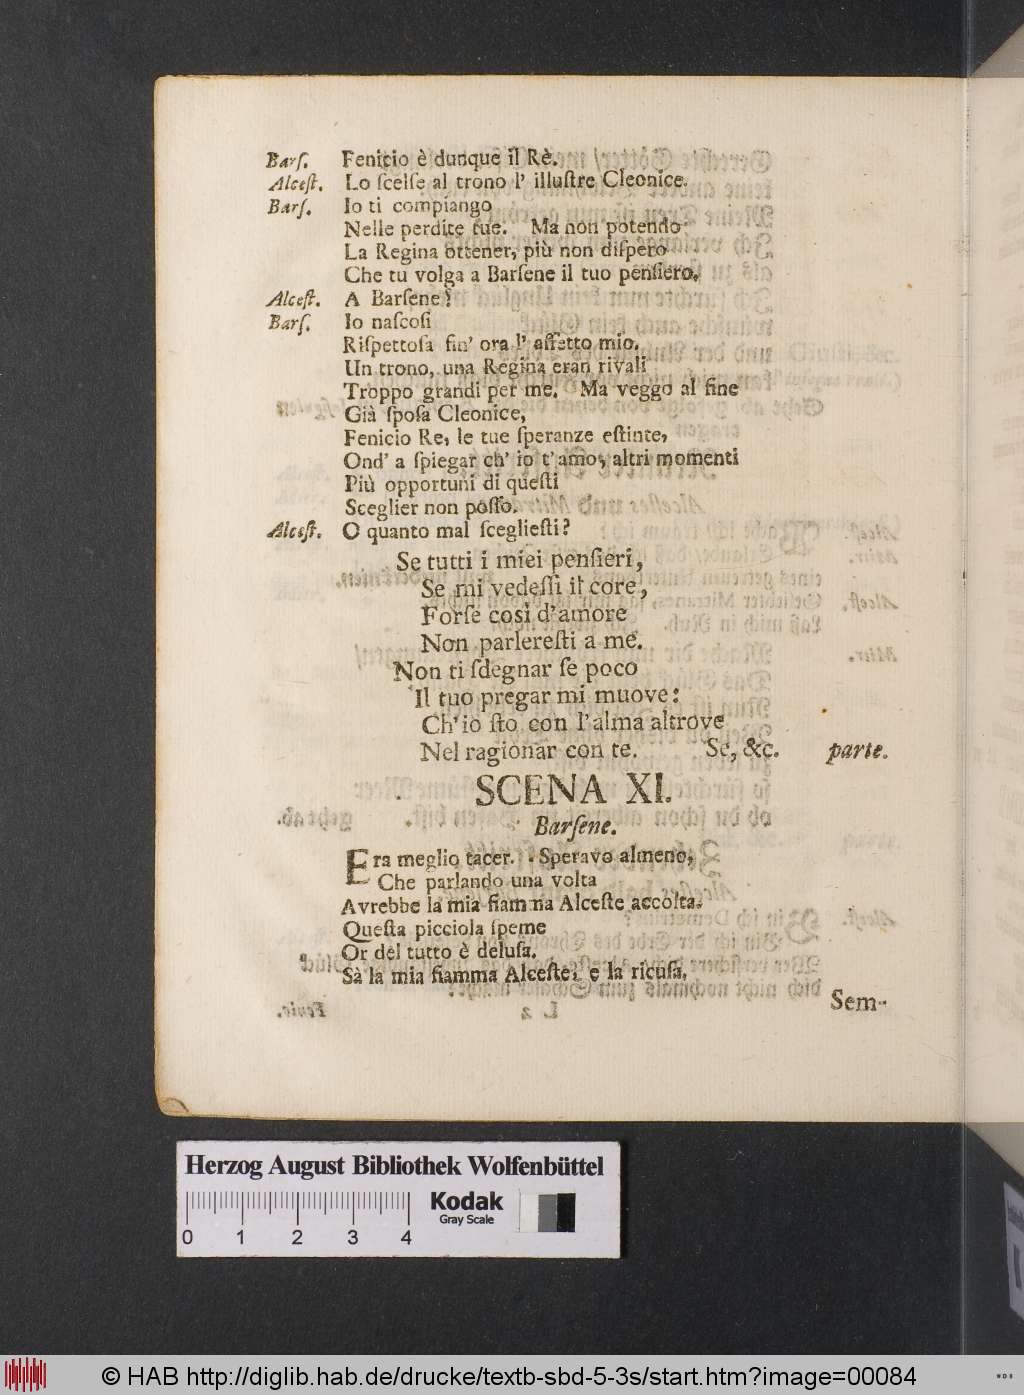 Barſ. Fenicio è dunque il Rè.
Alceſt. Lo ſcelſe al trono l' illuſtre Cleonice.
Barſ. Io ti compiango
Nelle perdite tue. Ma non potendo
La Regina ottener, più non diſpero
Che tu volga a Barſene il tuo penſiero.
Alceſt. A Barſene?
Barſ. Io naſcoſi
Riſpettoſa fin' ora l' affetto mio.
Un trono, una Regina eran rivali
Troppo grandi per me. Ma veggo al fine
Già ſpoſa Cleonice,
Fenicio Re, le tue ſperanze eſtinte,
Ond' a ſpiegar ch' io t'amo, altri momenti
Più opportuni di queſti
Sceglier non poſſo.
Alceſt. O quanto mal ſceglieſti?
Se tutti i miei penſieri,
Se mi vedeſſi il core,
Forſe così d'amore
Non parlereſti a me.
Non ti ſdegnar ſe poco
Il tuo pregar mi muove:
Ch'io ſto con l'alma altrove
Nel ragionar con te. Se, &c. parte.
SCENA XI.
Barſene.
Era meglio tacer. Speravo almeno,
Che parlando una volta
Avrebbe la mia fiamma Alceſte accolta.
Queſta picciola ſpeme
Or del tutto è deluſa.
Sà la mia fiamma Alceſte, e la ricuſa,
Sem-
Herzog August Bibliothek Wolfenbüttel
Kodak
Gray Scale
0 1 2 3 4
© HAB http://diglib.hab.de/drucke/textb-sbd-5-3s/start.htm?image=00084